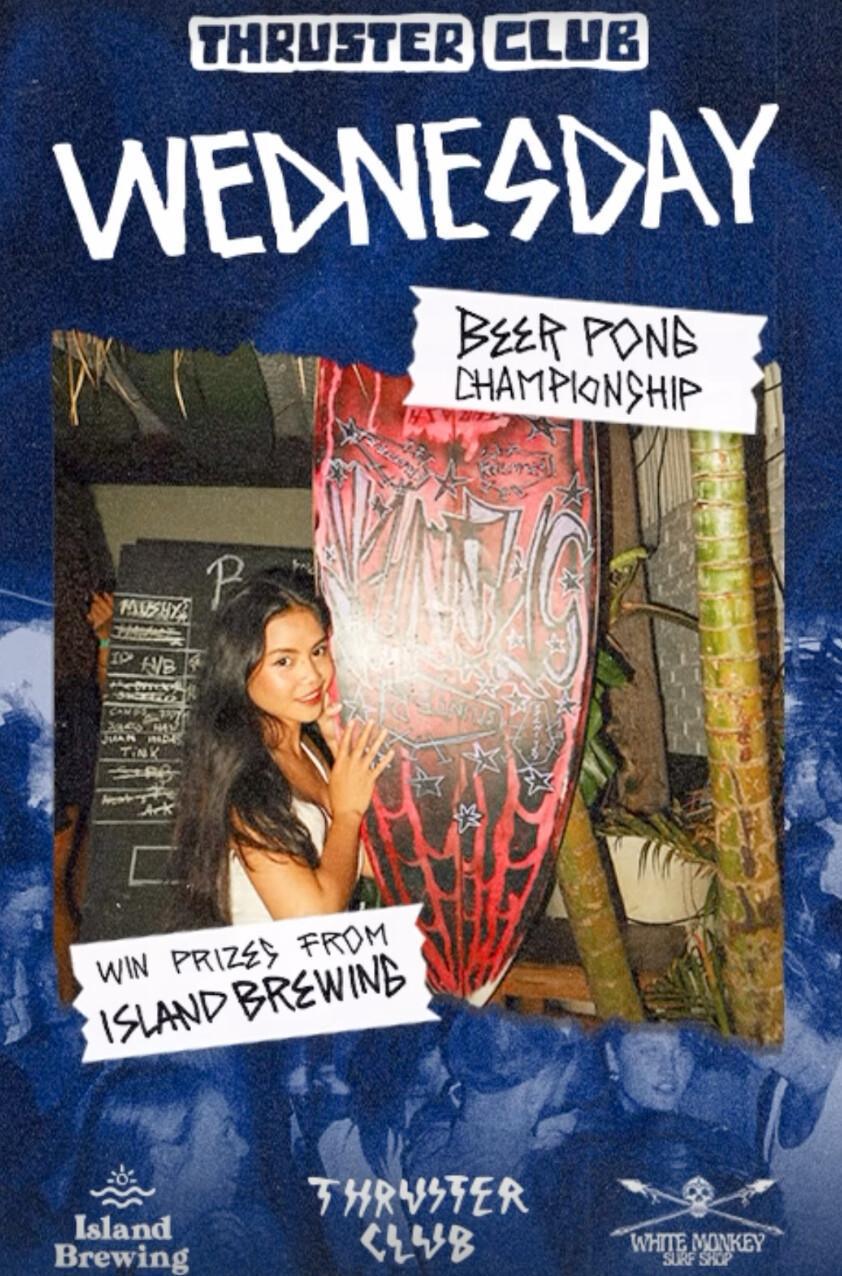 THRUSTER CLUB
WEDNESDAY
BEER PONG
CHAMPIONSHIP
KINGS
MUSHY
TINK
WIN PRIZES FROM
ISLAND BREWING
Island
Brewing
THRUSTER
CLUB
WHITE MONKEY
SURF SHOP